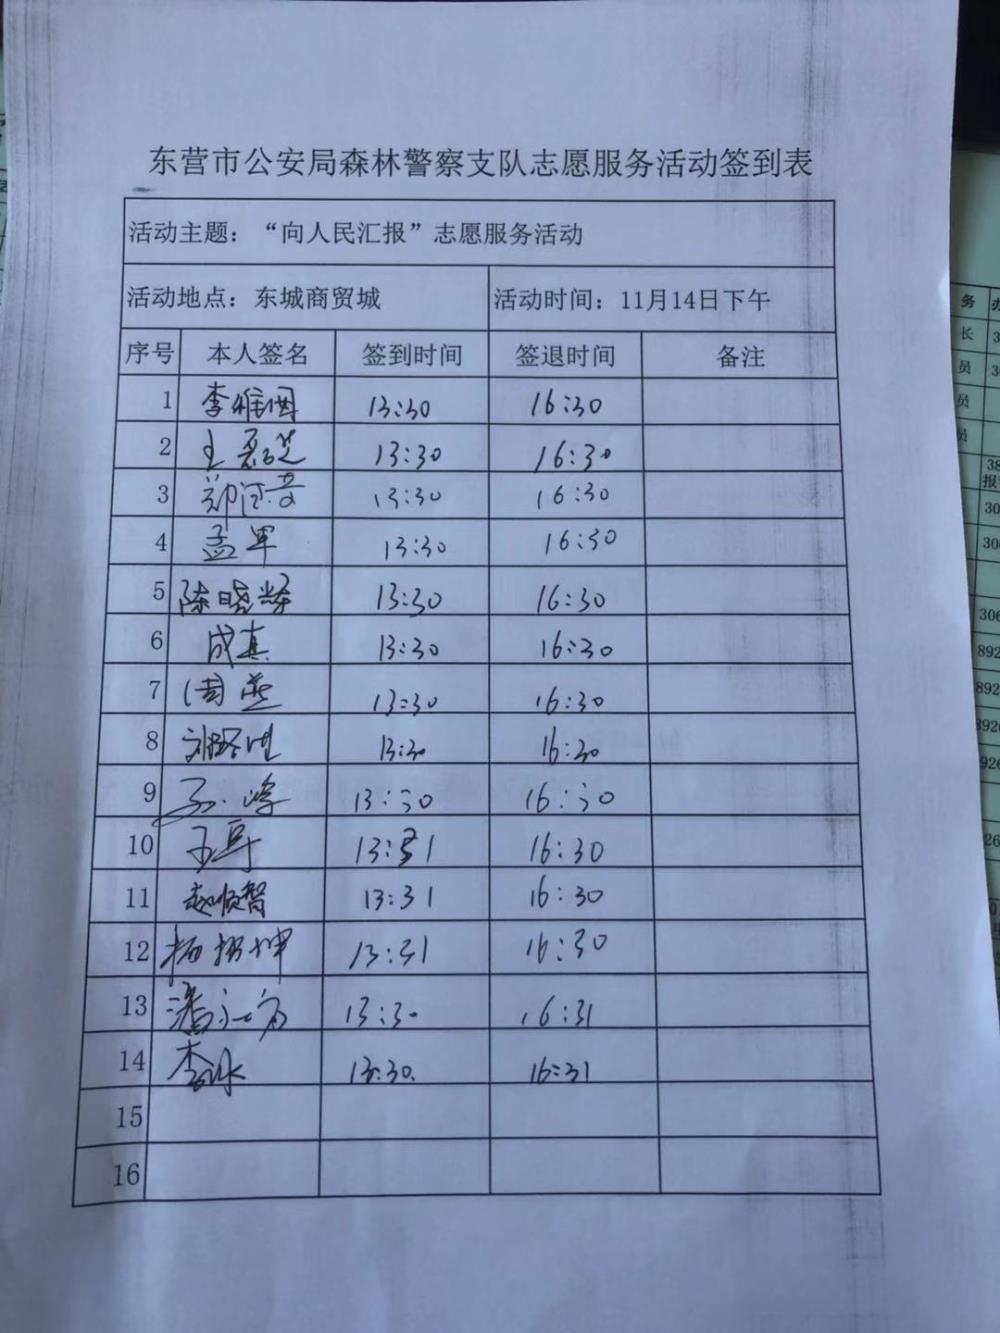 东营市公安局森林警察支队志愿服务活动签到表
活动主题：“向人民汇报”志愿服务活动
活动地点：东城商贸城 活动时间：11月14日下午
序号 本人签名 签到时间 签退时间 备注
1 李维国 13:30 16:30
2 王 13:30 16:30
3 郑 13:30 16:30
4 孟军 13:30 16:30
5 陈晓辉 13:30 16:30
6 成真 13:30 16:30
7 周燕 13:30 16:30
8 13:30 16:30
9 孙峰 13:30 16:30
10 13:31 16:30
11 赵顺智 13:31 16:30
12 杨坤 13:31 16:30
13 潘 13:30 16:31
14 李冰 13:30 16:31
15
16
务
长
员
员
员
30
306
306
892
892
892